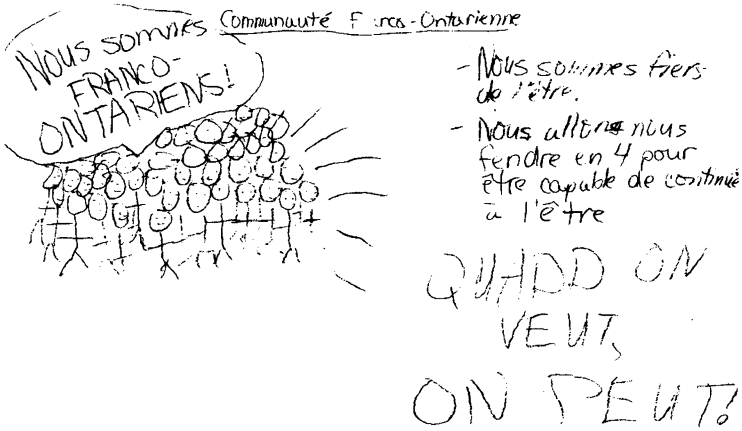 Communauté Franco-Ontarienne
NOUS SOMMES
FRANCO-
ONTARIENS!
- Nous sommes fiers
de l'être.
- Nous allons nous
fendre en 4 pour
être capable de continue
à l'être
QUAND ON
VEUT,
ON PEUT!